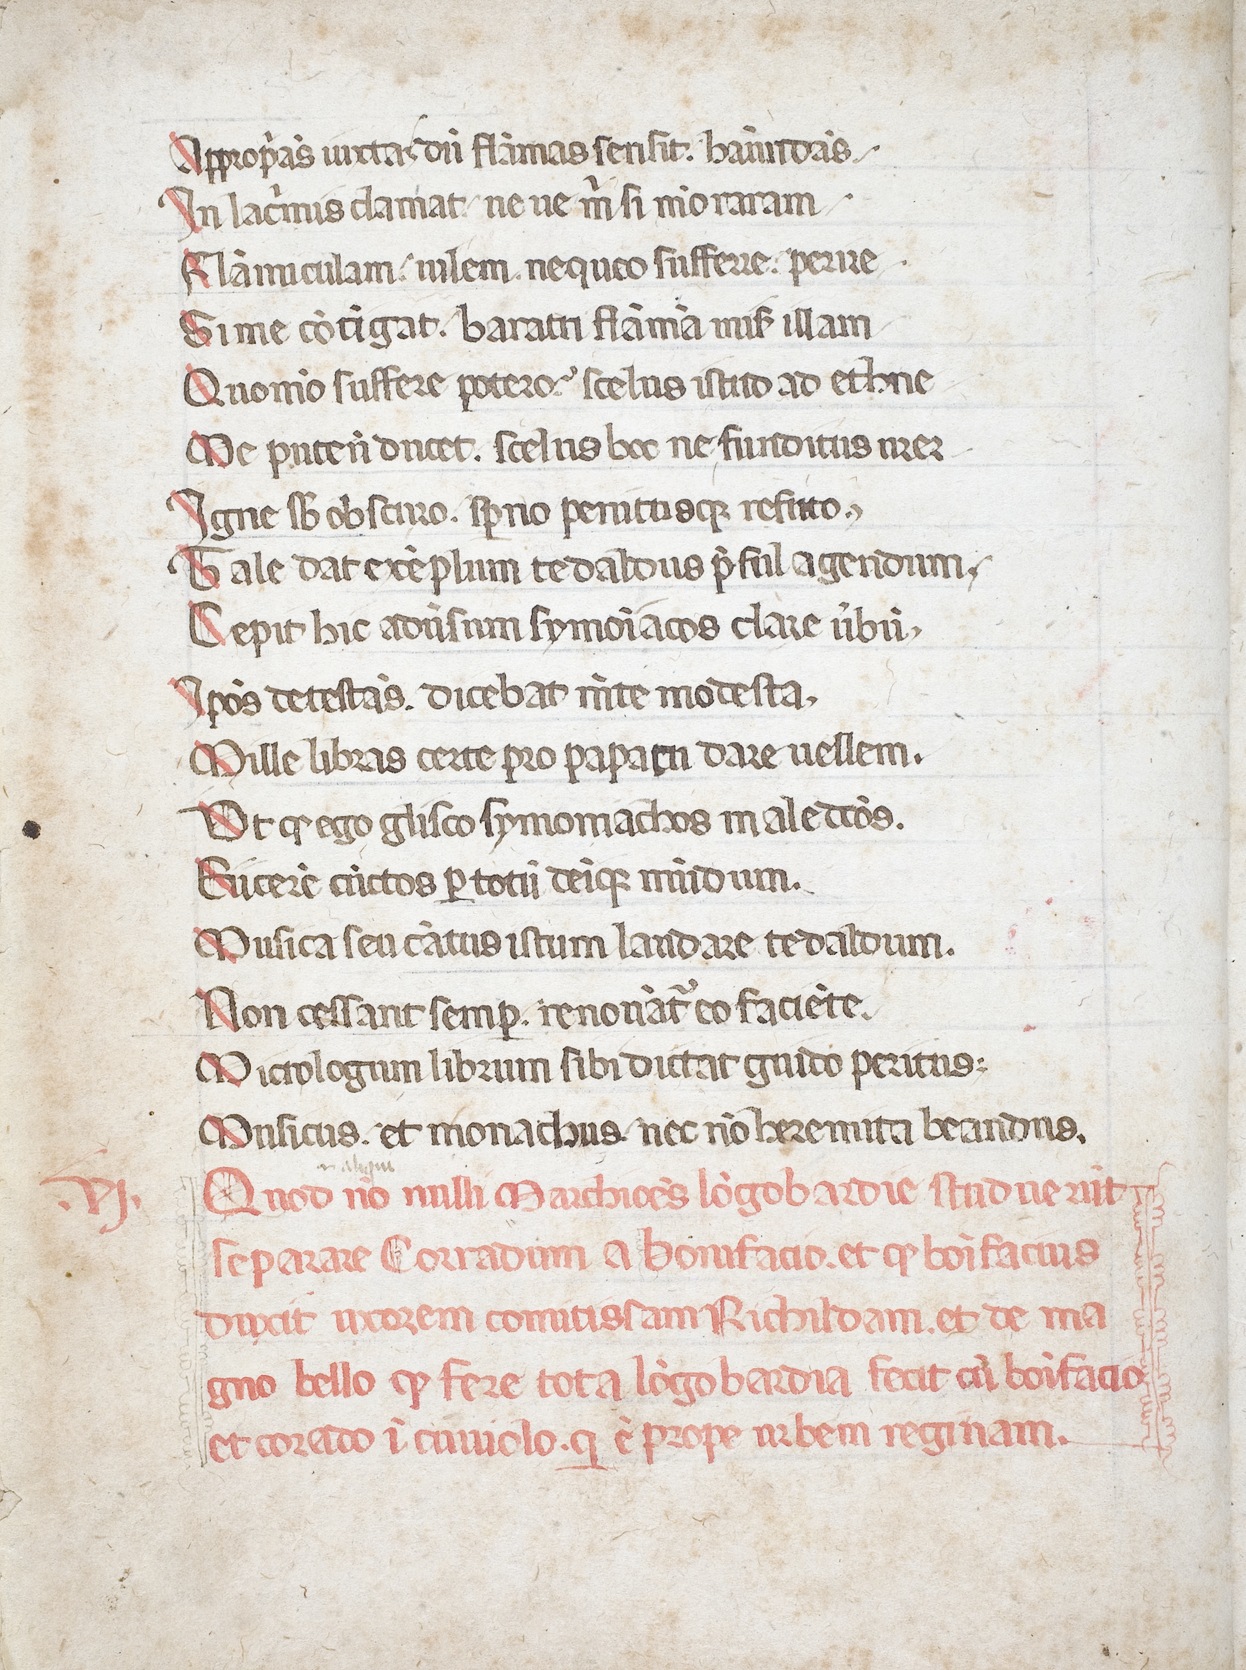 Approp̄ās iuxta dū flāmas sensit. hanītdās
In lac̄mis clamat. ne ue m̄ si mo raram
Flāmiculam. uilem. nequeo sufferre. perire
Si me cōtīgat. baratri flāmā mīs illam
Quomō suffere potero. scelus istud ad ethne
Me puteū ducet. scelus hoc ne funditus urer
Igne sb obscuro. sp̄no penitusq; refuto.
Tale dat exēplum tedaldus p̄sul agendum.
Cepit hic adūsum symoīacos clare ūbū,
Ip̄os detestās. dicebat mīte modesta,
Mille libras certe pro papatu dare uellem.
Vt qͥ ego glisco symomachos maledc̄os.
Eiicerē cūctos p totū deīq; mūdum.
Musica seu cātus istum laudare tedaldum.
Non cessant semp. renouāt᷑ eo faciēte.
Mictologum librum sibi dictat guido peritus:
Musicus. et monachus nec nō heremita beandus.
.VI. Quod nō nulli Marchiōēs lōgobardie studuerūt
separare Corradum a Bonifacio. et qͥ boīfacius
duxit uxorem comitissam Richildam. et de ma
gno bello qͥ fere tota lōgobardia fecit cū boīfacio
et corado ī cuuiolo. q ē prope urbem reginam.